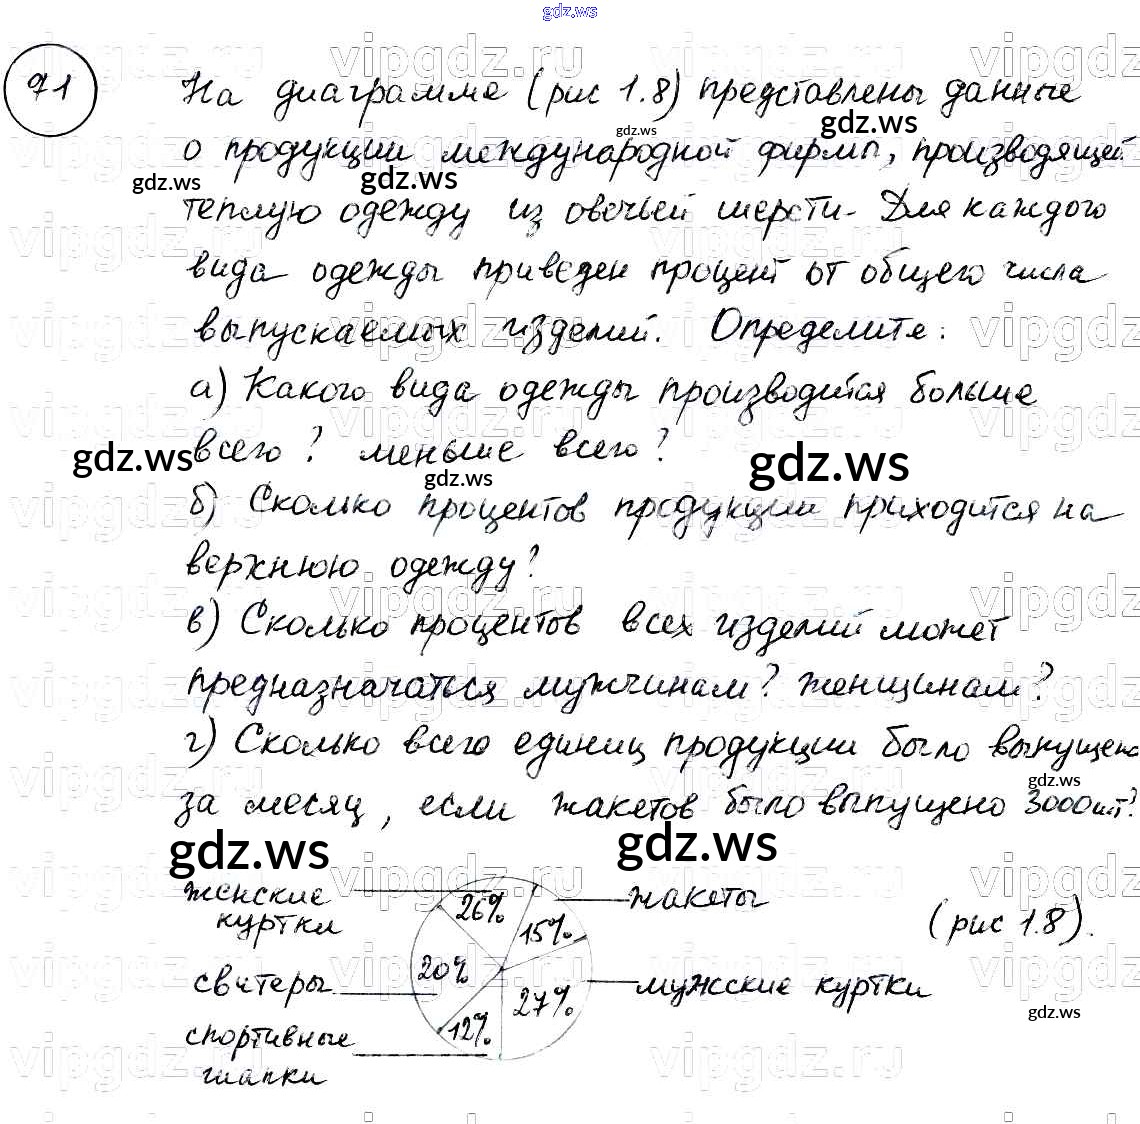 gdz.ws
71
На диаграмме (рис 1.8) представлены данные
о продукции международной фирмы, производящей
теплую одежду из овечьей шерсти. Для каждого
вида одежды приведен процент от общего числа
выпускаемых изделий. Определите:
а) Какого вида одежды производится больше
всего? меньше всего?
б) Сколько процентов продукции приходится на
верхнюю одежду?
в) Сколько процентов всех изделий может
предназначаться мужчинам? женщинам?
г) Сколько всего единиц продукции было выпущено
за месяц, если жакетов было выпущено 3000шт?
женские
куртки
26%
жакеты
15%
(рис 1.8).
свитеры
20%
27%
мужские куртки
спортивные
шапки
12%
gdz.ws
vipgdz